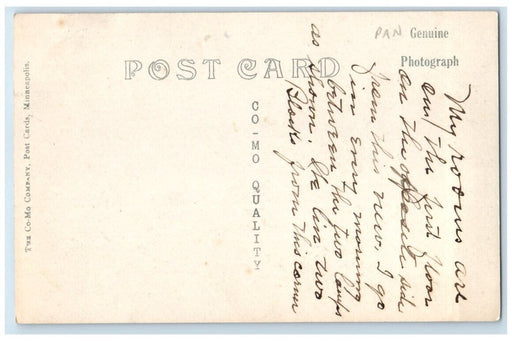 PAN Genuine
Photograph
POST CARD
CO-MO QUALITY
THE CO-MO COMPANY, Post Cards, Minneapolis.
My rooms are
on the first floor
on the opposite side
from this view. I go
in every morning
between the two lamps
as shown. We live two
Blocks from this corner